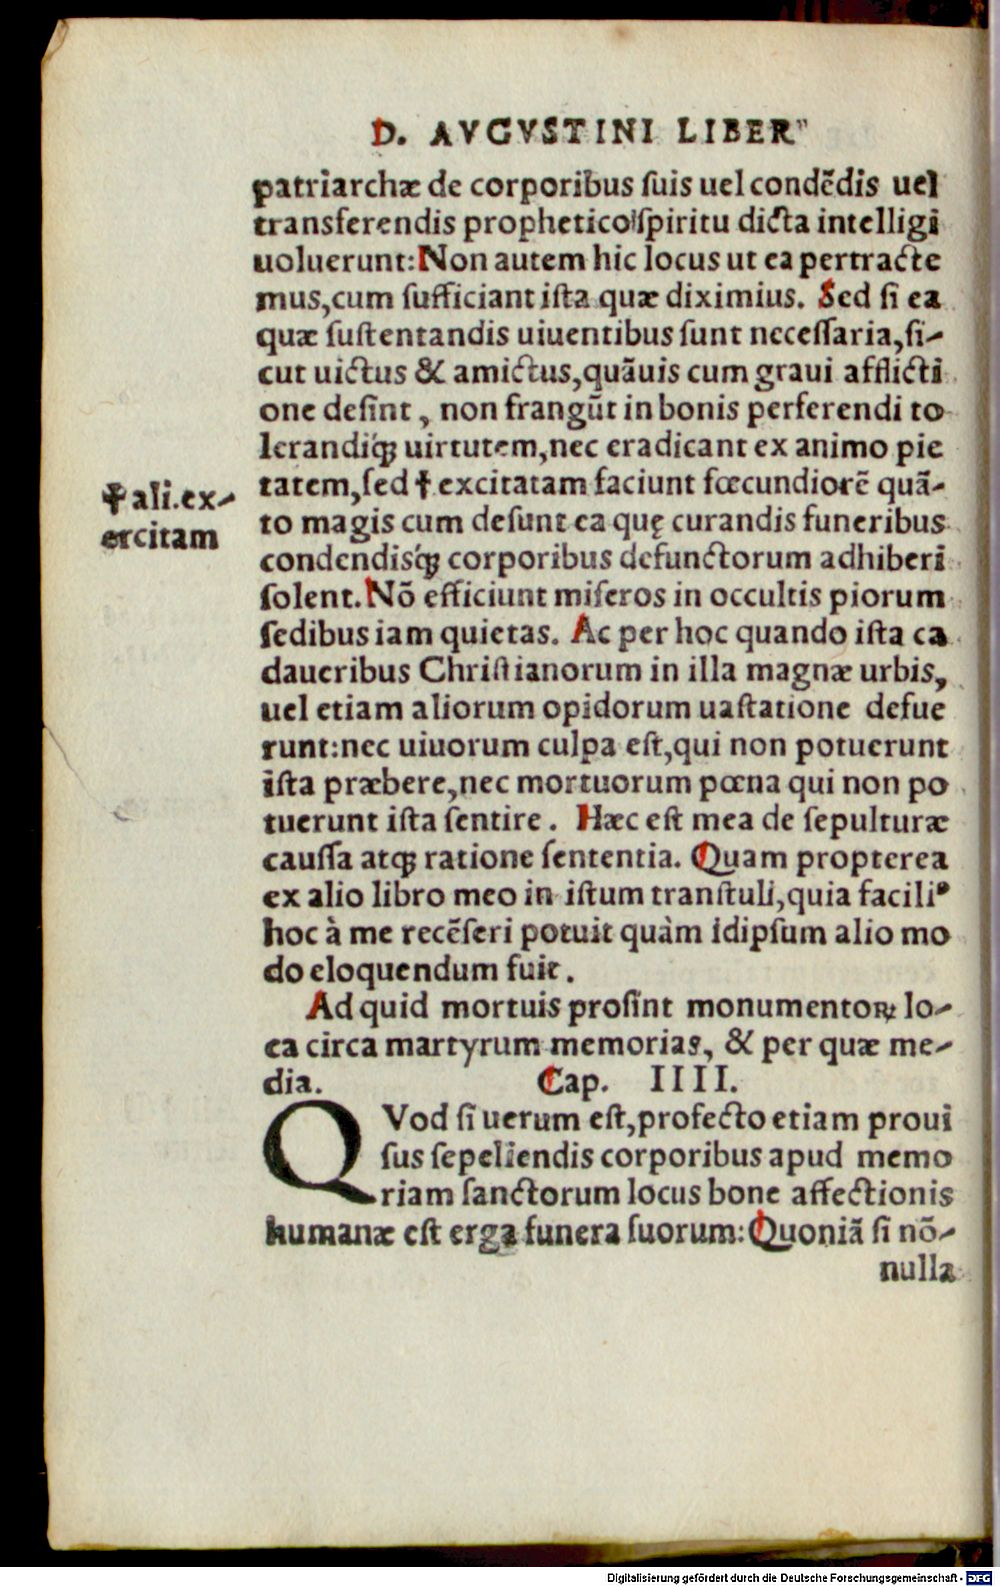 D. AVGVSTINI LIBER
patriarchæ de corporibus ſuis uel condēdis uel
transferendis prophetico ſpiritu dicta intelligi
uoluerunt: Non autem hic locus ut ea pertracte
mus, cum ſufficiant iſta quæ diximius. Sed ſi ea
quæ ſuſtentandis uiuentibus ſunt neceſſaria, ſi-
cut uictus & amictus, quāuis cum graui afflicti
one deſint, non frangūt in bonis perferendi to
lerandiq́ꝫ uirtutem, nec eradicant ex animo pie
tatem, ſed † excitatam faciunt fœcundiorē quā-
† ali. ex-
ercitam
to magis cum deſunt ea quę curandis funeribus
condendisq́ꝫ corporibus defunctorum adhiberi
ſolent. Nō efficiunt miſeros in occultis piorum
ſedibus iam quietas. Ac per hoc quando iſta ca
daueribus Chriſtianorum in illa magnæ urbis,
uel etiam aliorum opidorum uaſtatione defue
runt: nec uiuorum culpa eſt, qui non potuerunt
iſta præbere, nec mortuorum pœna qui non po
tuerunt iſta ſentire. Hæc eſt mea de ſepulturæ
cauſſa atqꝫ ratione ſententia. Quam propterea
ex alio libro meo in iſtum tranſtuli, quia faciliꝰ
hoc à me recēſeri potuit quàm idipſum alio mo
do eloquendum fuit.
Ad quid mortuis proſint monumentoꝝ lo-
ca circa martyrum memorias, & per quæ me-
dia. Cap. IIII.
QVod ſi uerum eſt, profecto etiam proui
ſus ſepeliendis corporibus apud memo
riam ſanctorum locus bone affectionis
humanæ eſt erga funera ſuorum: Quoniā ſi nō-
nulla
Digitalisierung gefördert durch die Deutsche Forschungsgemeinschaft - DFG